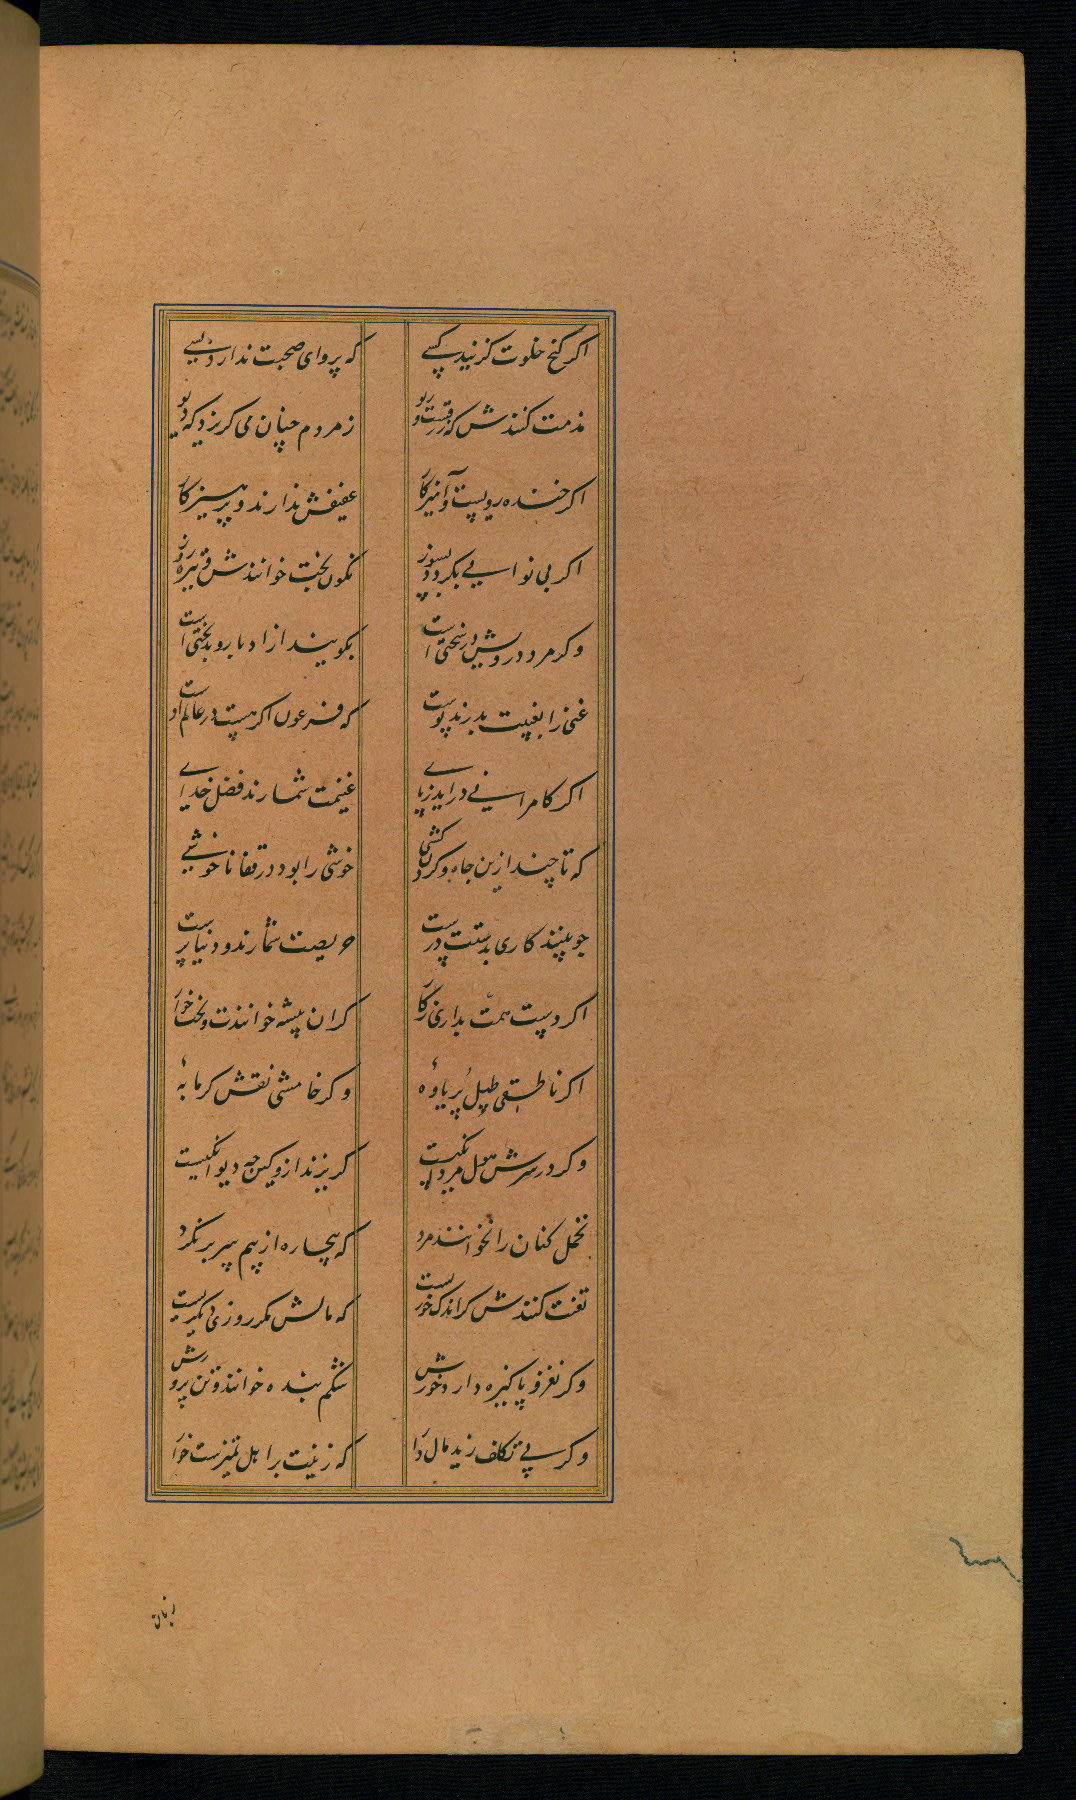 اگر کنج خلوت گزیند کسی که پروای صحبت ندارد بسی
مذمت کنندش که زرقست و ریو ز مردم چنان می گریزد که دیو
اگر خنده رویست و آمیزگار عفیفش ندارند و پرهیزگار
اگر بی نوایی بگرید بسوز نگون بخت خوانندش و تیره روز
وگر مرد درویش در سختی است بگویند از ادبار و بدبختی است
غنی را بغیبت بدرند پوست که فرعون اگر هست در عالم اوست
اگر کامرانی در آید ز پای غنیمت شمارند فضل خدای
که تا چند ازین جاه و گردن کشی خوشی را بود در قفا ناخوشی
چو بینند کاری بدستت درست حریصت شمارند و دنیا پرست
اگر دست همت بداری ز کار گران پیشه خوانندت و پخته خوار
اگر ناطقی طبل پر یاوهٔ وگر خامشی نقش گرمابهٔ
وگر در سرش هول مردانگیست گریزند ازو کین چه دیوانگیست
تحمل کنان را نخوانند مرد که بیچاره از بیم سر بر نکرد
تعنت کنندش گر اندک خوریست که مالش مگر روزی دیگریست
وگر نغز و پاکیزه دارد خورش شکم بنده خوانند و تن پرورش
وگر بی تکلف زید مال دار که زینت بر اهل تمیزست خوار